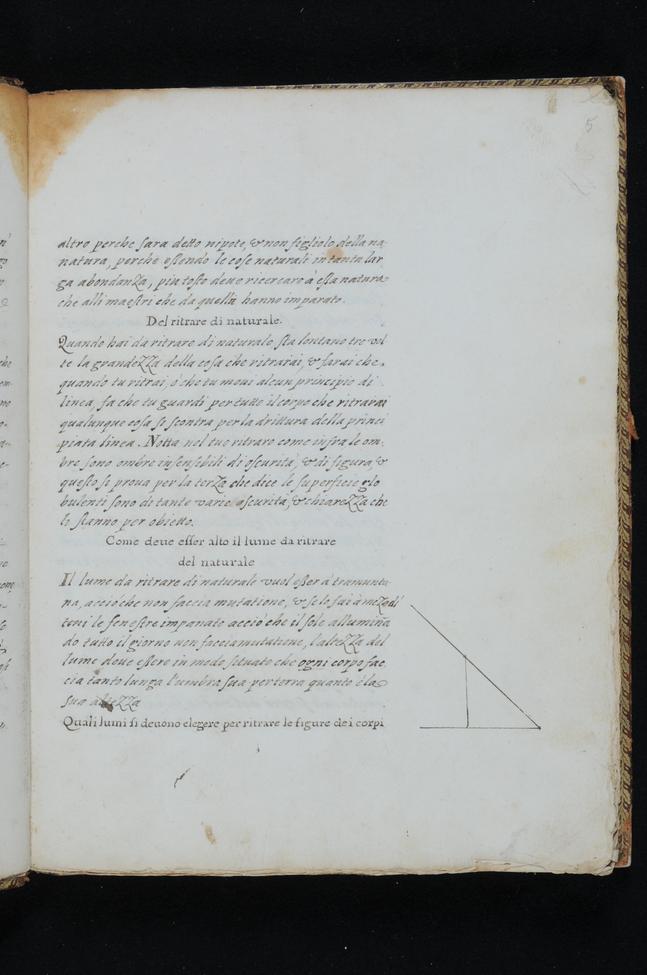 5
altro perche sara detto nipote, & non figliolo della na
natura, perche essendo le cose naturali in tanta lar
ga abondanza, piu tosto deue ricercaro à essa natura
che alli maestri che da quella hanno imparato.
Del ritrare di naturale.
Quando hai da ritrare di naturale, sta lontano tre vol
te la grandezza della cosa che ritrarai, & farai che,
quando tu ritrai, ò che tu moui alcun principio di
linea, fa che tu guardi per tutto il corpo che ritrarai
qualunque cosa se scontra per la drittura della princi
piata linea. Notta nel tuo ritraro come infra le om-
bre sono ombre insensibili di oscurità, & di figura, &
questo si proua per la terza che dice le superficie glo
bulenti sono di tante varie oscurità, & chiarezza che
li stanno per obietto.
Come deue esser alto il lume da ritrare
del naturale
Il lume da ritrare di naturale vuol esser à tramunta
na, acciò che non faccia mutatione, & se lo fai à mezo di
tieni le fenestre impanate acciò che il sole allumina
do tutto il giorno non faccia mutatione, l'altezza del
lume deue essere in modo situato che ogni corpo fac
cia tanto lunga l'umbra sua per terra quanto è la
sua altezza
Quali lumi si deuono elegere per ritrare le figure de i corpi